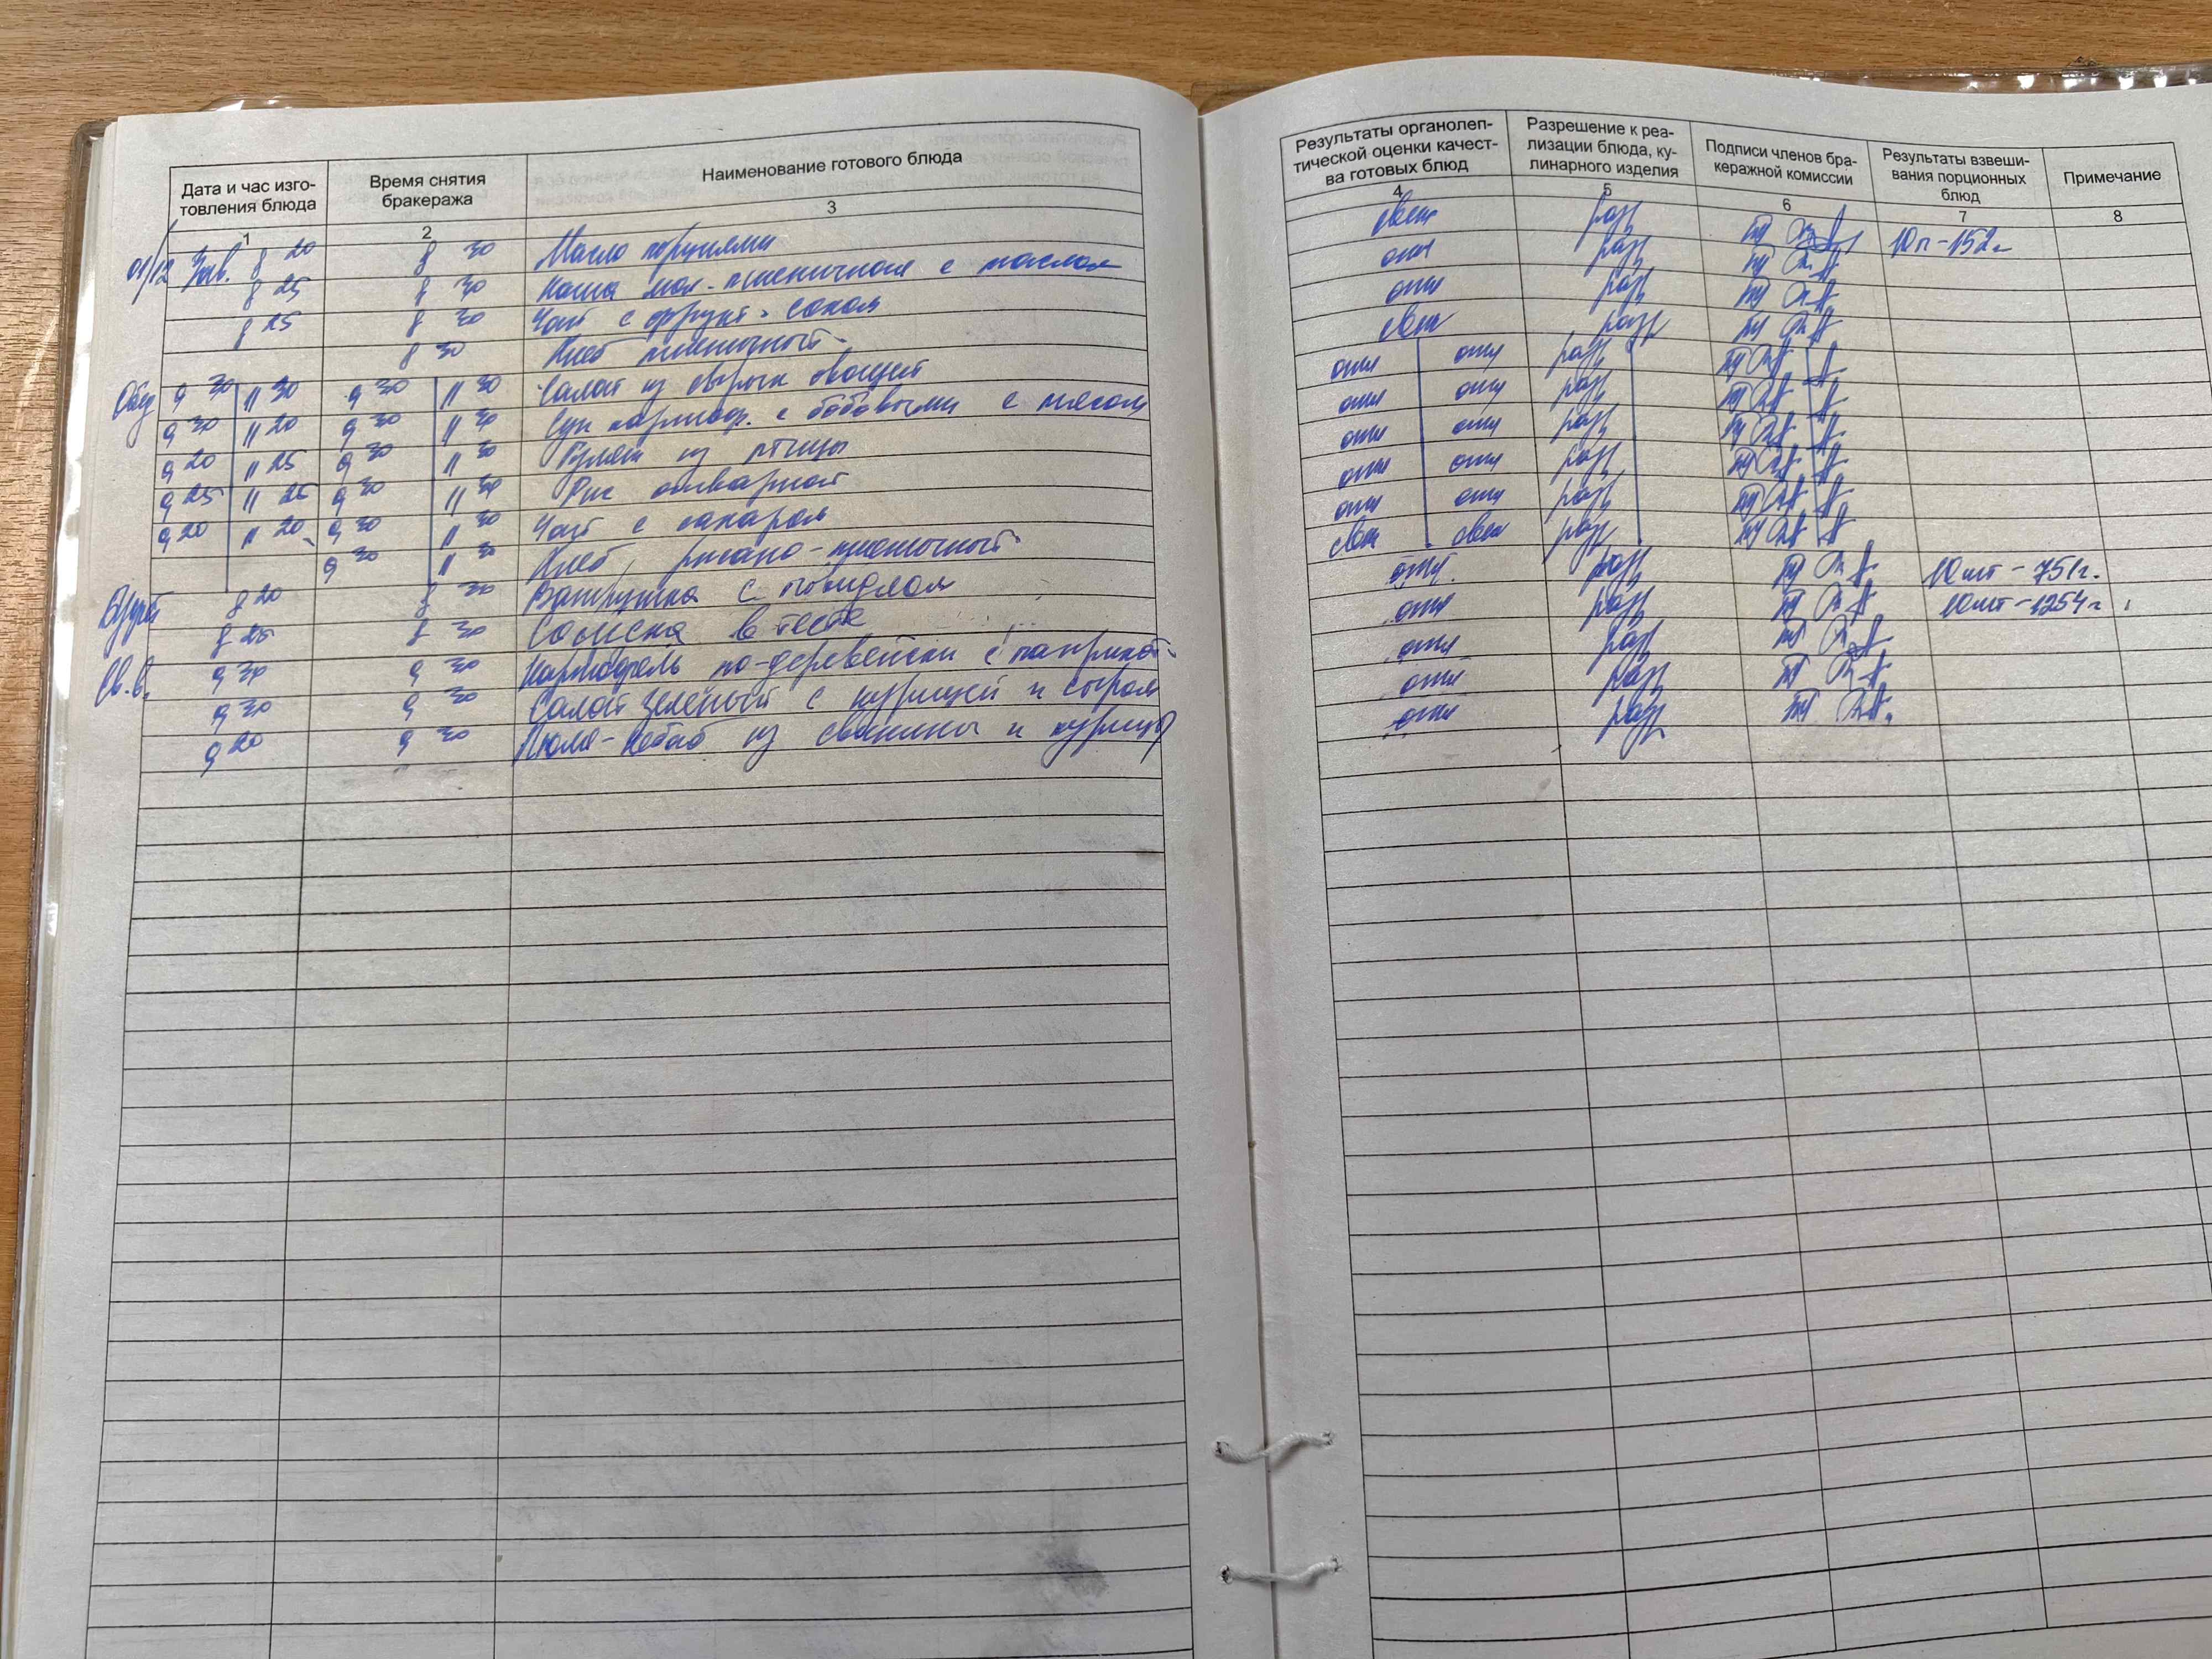 Дата и час изго-
товления блюда
Время снятия
бракеража
Наименование готового блюда
1 2 3
01/12 Зав. 8 20 8 30 Масло порциями
8 25 8 30 Каша мол. пшеничная с маслом
8 25 8 30 Чай с фрукт. соком
8 30 Хлеб пшеничный
Обед 9 30 11 30 9 30 11 30 Салат из свежих овощей
9 30 11 20 9 30 11 30 Суп картоф. с бобовыми с мясом
9 20 11 25 9 30 11 30 Гуляш из птицы
9 25 11 25 9 30 11 30 Рис отварной
9 20 11 20 9 30 11 30 Чай с сахаром
9 30 11 30 Хлеб ржано-пшеничный
Буфет 8 20 8 30 Ватрушка с повидлом
8 25 8 30 Сосиска в тесте
Св. в. 9 30 9 30 Картофель по-деревенски с паприкой
9 30 9 30 Салат зеленый с курицей и сыром
9 20 9 30 Люля-кебаб из свинины и курицы
Результаты органолеп-
тической оценки качест-
ва готовых блюд
Разрешение к реа-
лизации блюда, ку-
линарного изделия
Подписи членов бра-
керажной комиссии
Результаты взвеши-
вания порционных
блюд
Примечание
4 5 6 7 8
свеж разр 10п - 152г
отл разр
отл разр
свеж разр
отл отл разр
отл отл разр
отл отл разр
отл отл разр
отл отл разр
свеж свеж разр
отл разр 10шт - 751г.
отл разр 10шт - 1254г
отл разр
отл разр
отл разр